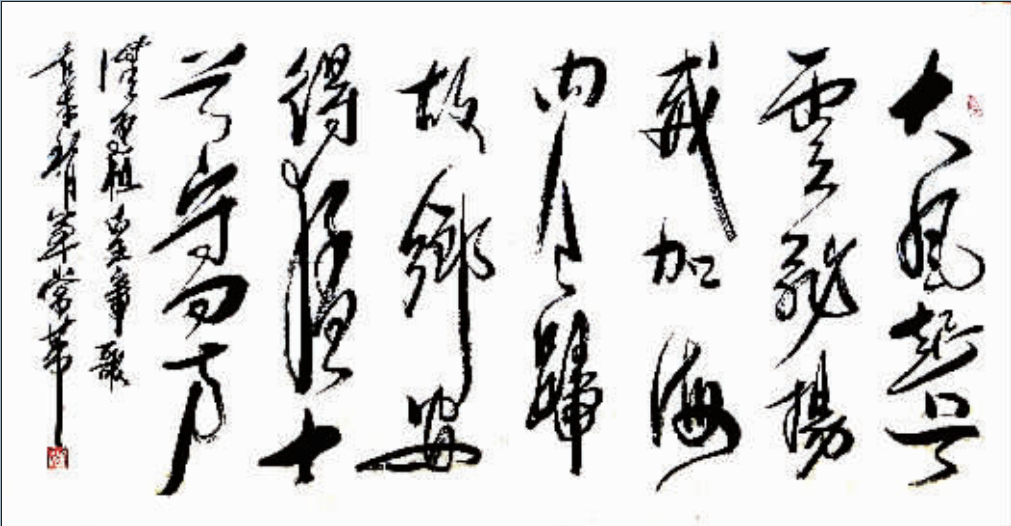 大風起兮
雲飛揚
威加海
內兮歸
故鄉安
得猛士
兮守四方
漢高祖歌